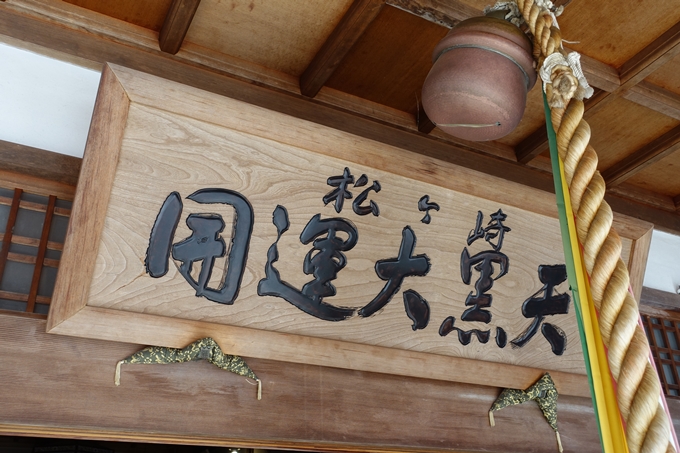 松ヶ崎
開運大黒天